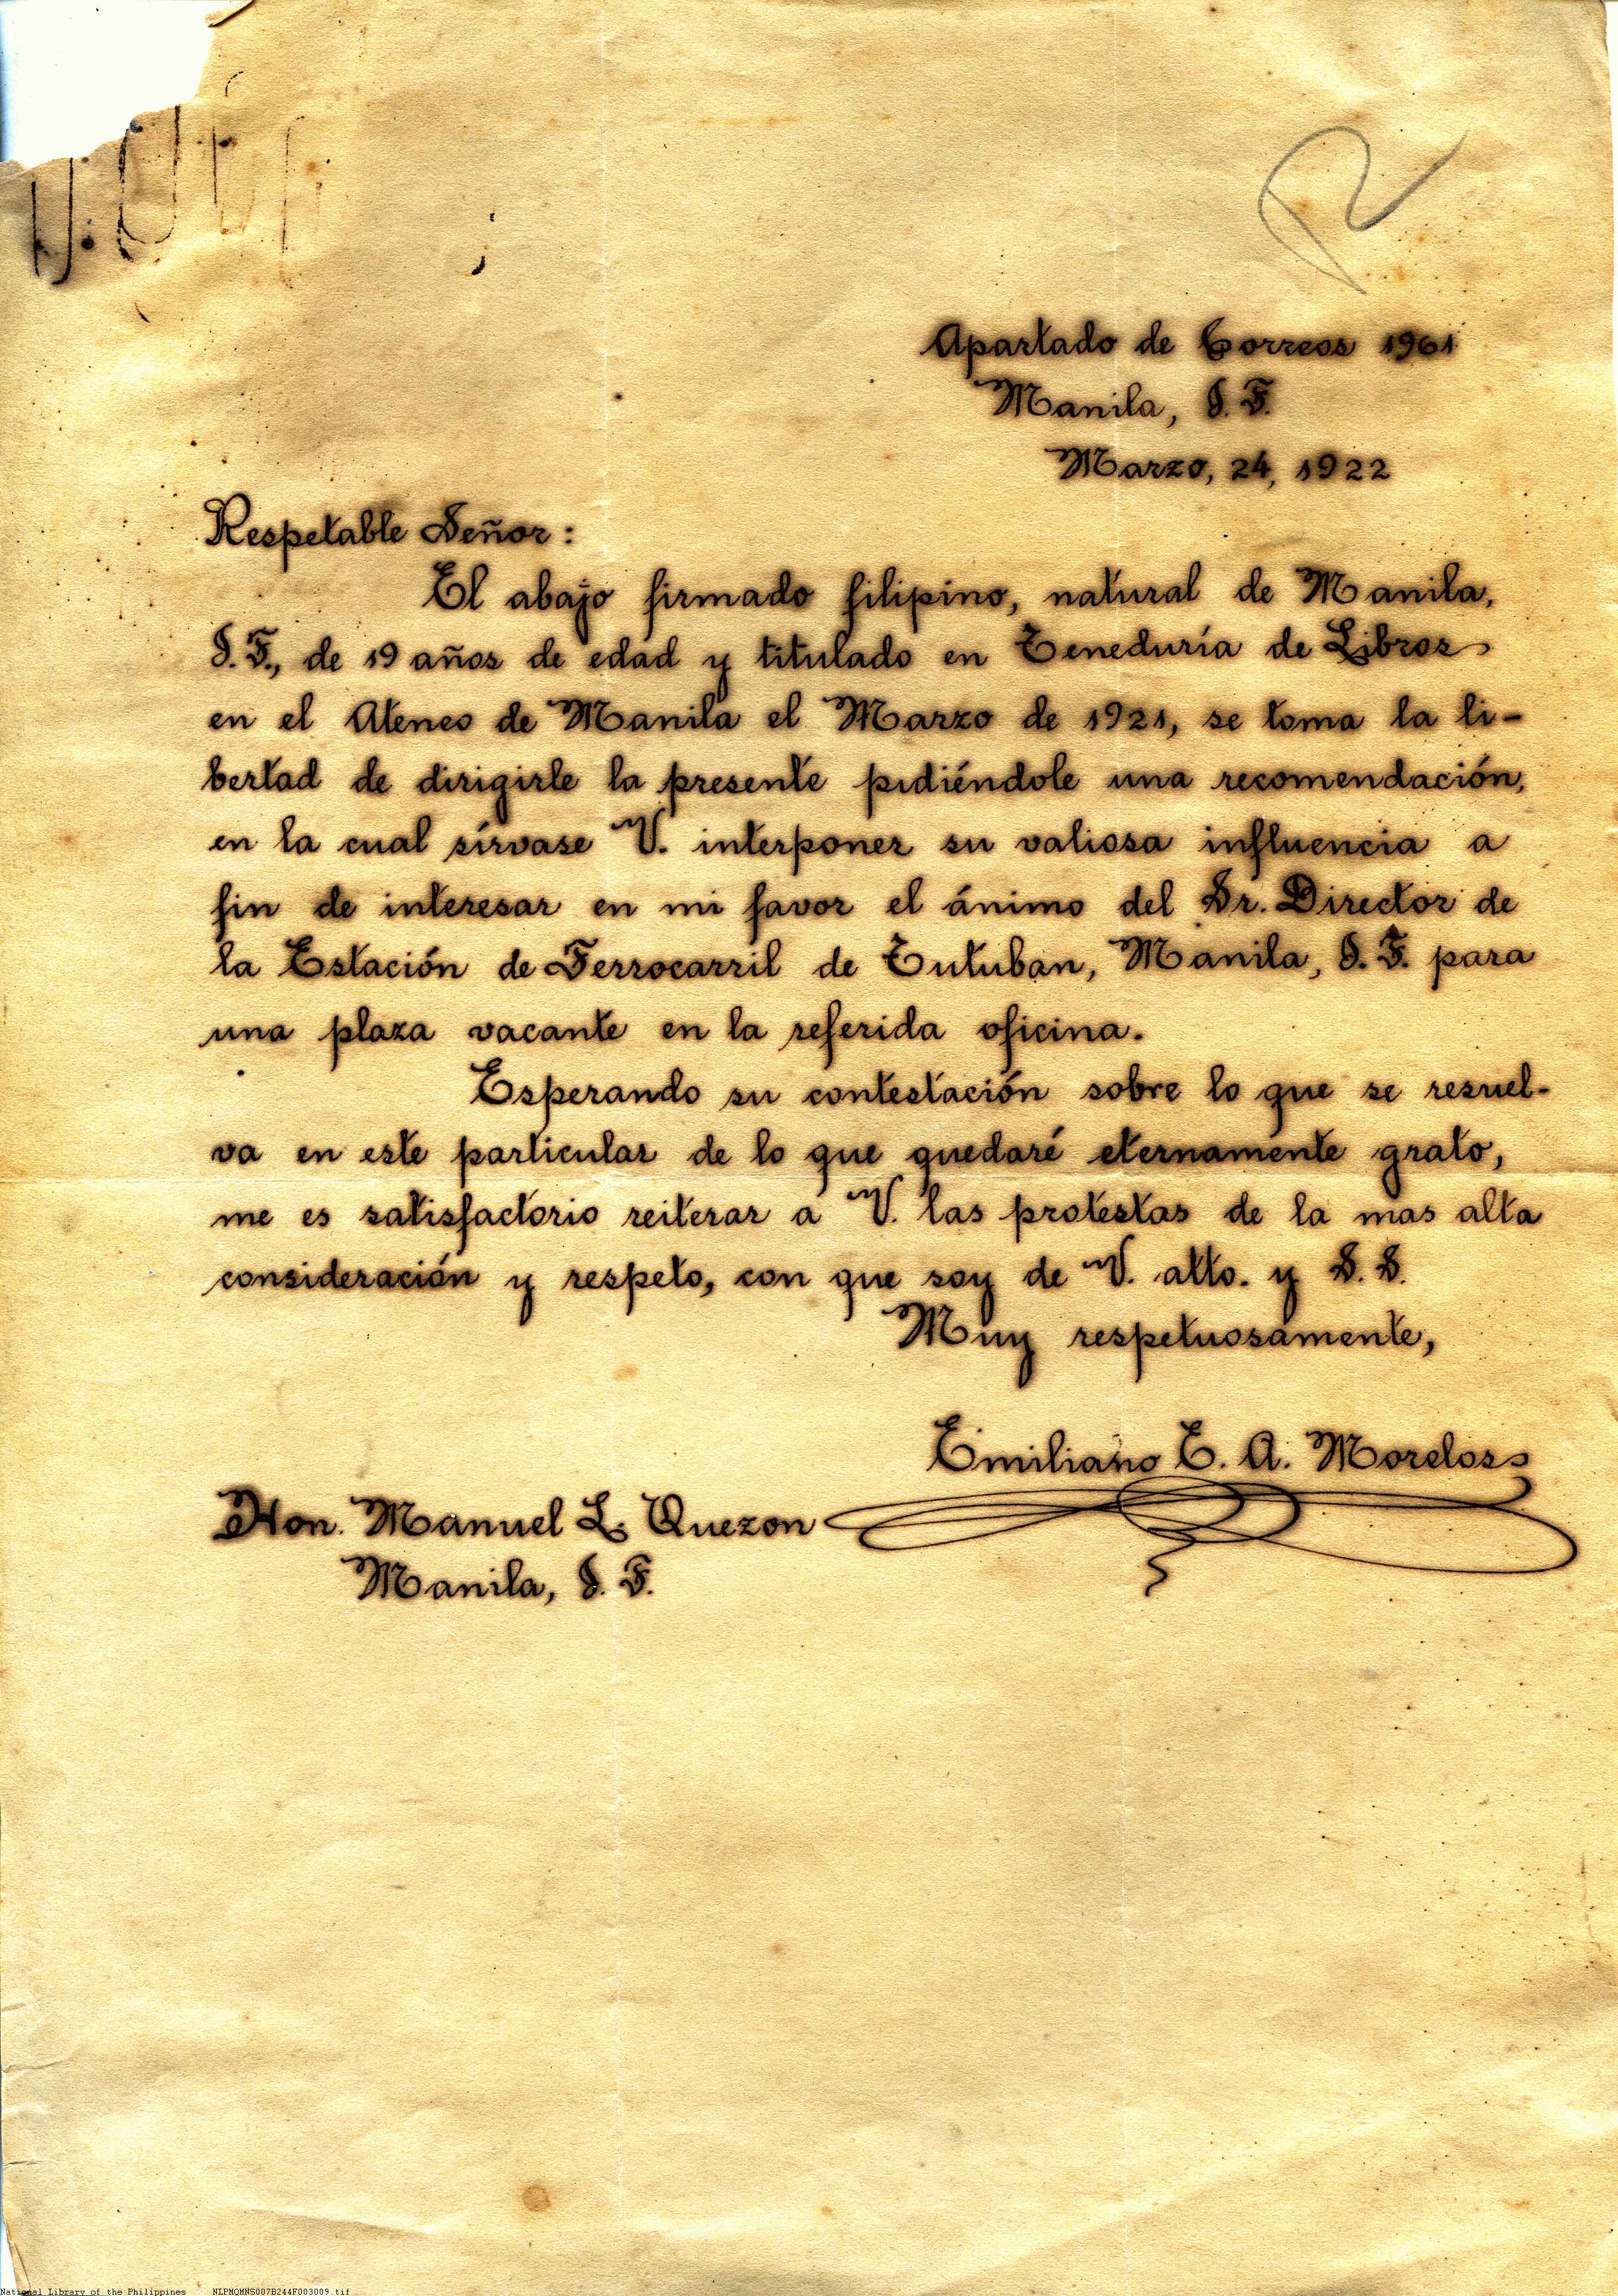 Apartado de Correos 1961
Manila, I. F.
Marzo, 24, 1922
Respetable Señor:
El abajo firmado filipino, natural de Manila,
I. F., de 19 años de edad y titulado en Teneduría de Libros
en el Ateneo de Manila el Marzo de 1921, se toma la li-
bertad de dirigirle la presente pidiéndole una recomendación,
en la cual sírvase V. interponer su valiosa influencia a
fin de interesar en mi favor el ánimo del Sr. Director de
la Estación de Ferrocarril de Tutuban, Manila, I. F. para
una plaza vacante en la referida oficina.
Esperando su contestación sobre lo que se resuel-
va en este particular de lo que quedaré eternamente grato,
me es satisfactorio reiterar a V. las protestas de la mas alta
consideración y respeto, con que soy de V. atto. y S. S.
Muy respetuosamente,
Emiliano T. A. Morelos
Hon. Manuel L. Quezon
Manila, I. F.
National Library of the Philippines NLPMQMNS007B244F003009.tif